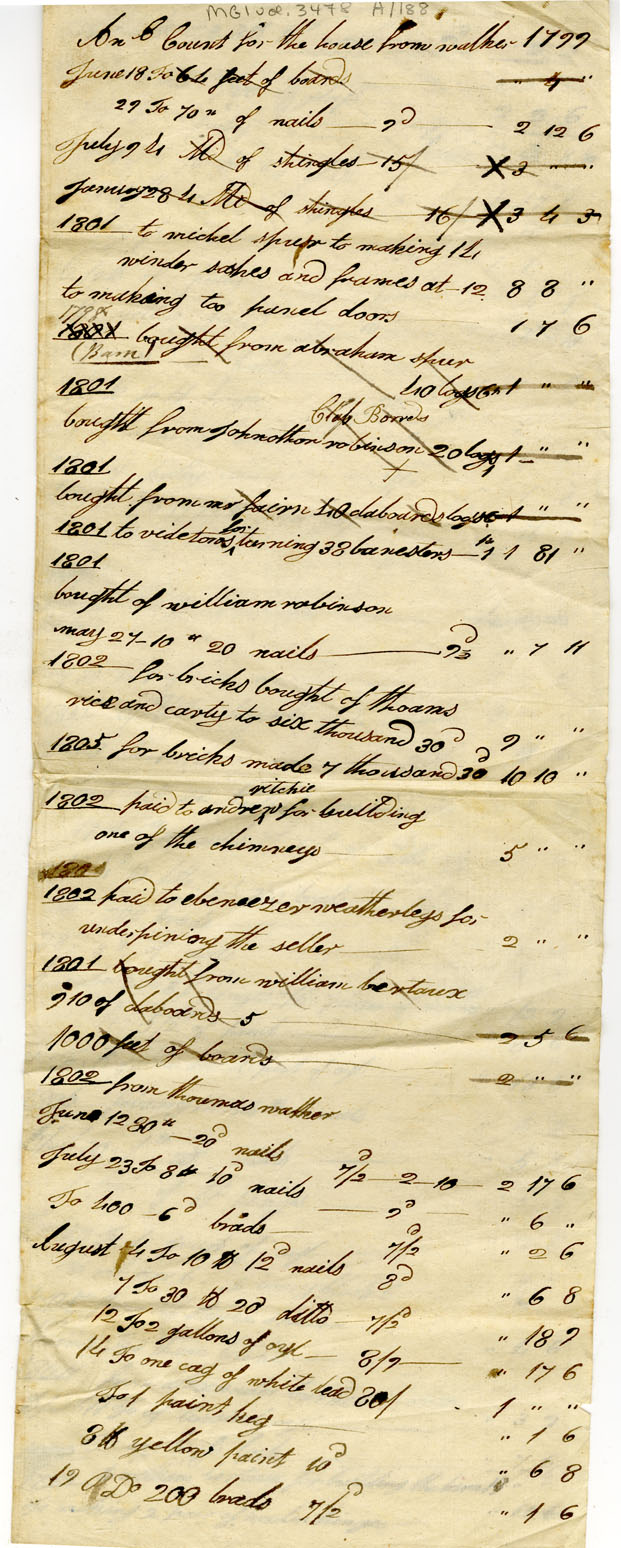 MG1 vol. 3478 A/188
An C Count for the house from walker 1799
June 18 To 64 feet of boards " 4 "
29 To 70 " of nails — 9d — 2 12 6
July 9 4 Md of shingles 15/ X 3 " "
January 28 4 Md of shingles 16/ X 3 4 3
1801 to michel spurr to making 14
winder sashes and frames at 12 8 8 "
to making too panel doors 1 7 6
1798
1801 bought from abraham spurr
(Barn)
40 logs 1 " "
1801
Clab Bords
bought from Johnothon robinson 20 logs 1 " "
1801
bought from mr fairn 40 claboards logs 1 " "
1801 to videtoes for turning 38 banesters 1 1 81 "
1801
bought of william robinson
may 27-10 " 20 nails — 9½d " 7 11
1802 for bricks bought of thoams
rice and carty to six thousand 30d 9 " "
1805 for bricks made 7 thoussand 30d 10 10 "
ritchie
1802 paid to andrew for building
one of the chimneys 5 " "
1801
1802 paid to ebenezer weatherleys for
underpining the seller 2 " "
1801 bought from william bertaux
910 of claboards 5 2 5 6
1000 feet of boards 2 " "
1802 from thoumas walker
June 12 80 " — 20d nails
7½d 2 10 2 17 6
July 23 To 8 lb 10d nails 9d " 6 "
To 400 — 6d brads 7/2d " 2 6
August 4 To 10 lb 12d nails 8d " 6 8
7 To 30 lb 20 ditto 7/2d " 18 9
12 To 2 gallons of oyl 8/9 " 17 6
14 To one cag of white lead 20/ 1 " "
To 1 paint keg " 1 6
8 lb yellow paint 10d " 6 8
19 Do 200 brads 7/2d " 1 6